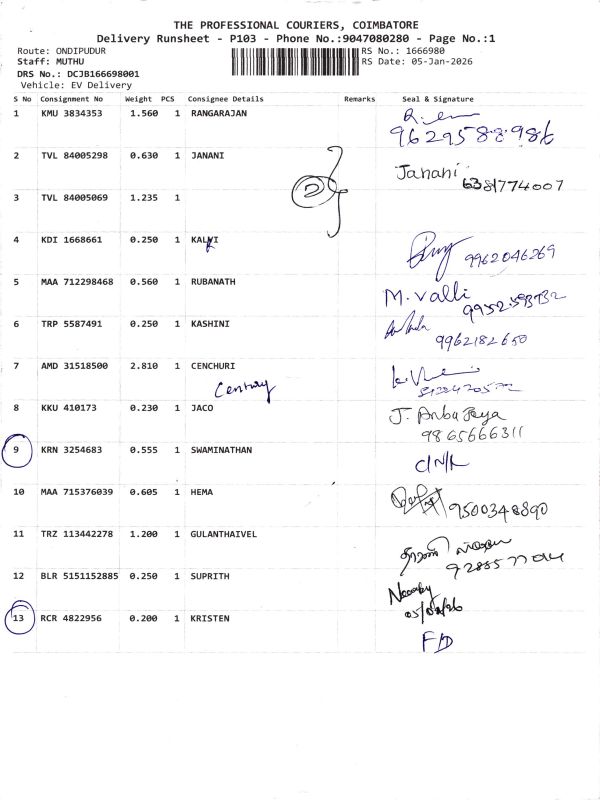 THE PROFESSIONAL COURIERS, COIMBATORE
Delivery Runsheet - P103 - Phone No.:9047080280 - Page No.:1
Route: ONDIPUDUR RS No.: 1666980
Staff: MUTHU RS Date: 05-Jan-2026
DRS No.: DCJB166698001
Vehicle: EV Delivery
S No Consignment No Weight PCS Consignee Details Remarks Seal & Signature
1 KMU 3834353 1.560 1 RANGARAJAN
9629588986
2 TVL 84005298 0.630 1 JANANI Janani
6381774007
2
3 TVL 84005069 1.235 1
4 KDI 1668661 0.250 1 KALKI
9962046269
5 MAA 712298468 0.560 1 RUBANATH M. Valli
6 TRP 5587491 0.250 1 KASHINI
9962182650
7 AMD 31518500 2.810 1 CENCHURI
Century
8 KKU 410173 0.230 1 JACO J. Anba Jeya
9865666311
9 KRN 3254683 0.555 1 SWAMINATHAN
C/N/L
10 MAA 715376039 0.605 1 HEMA
9500348890
11 TRZ 113442278 1.200 1 GULANTHAIVEL
12 BLR 5151152885 0.250 1 SUPRITH
13 RCR 4822956 0.200 1 KRISTEN
F/D